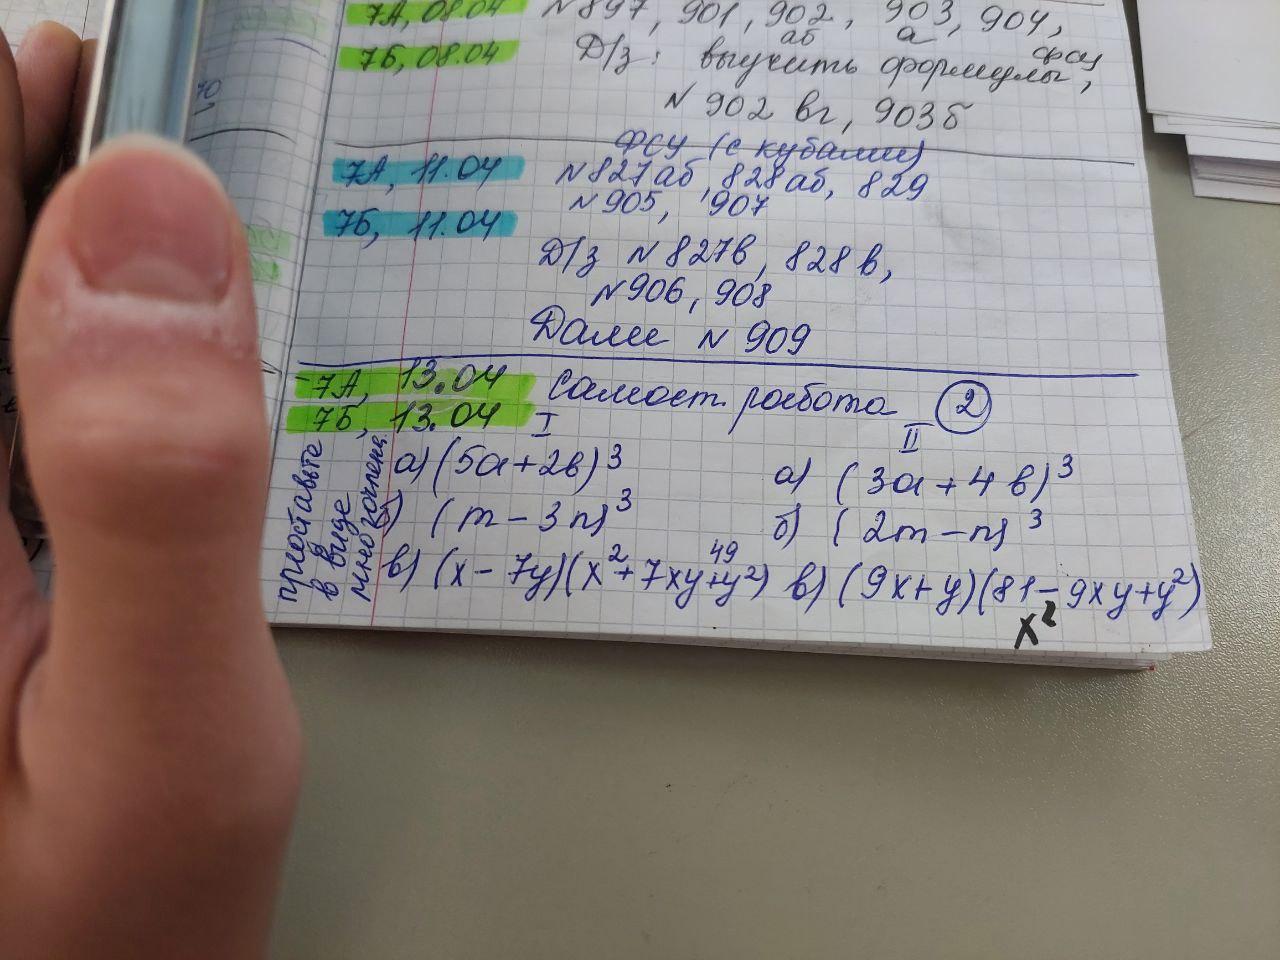 7А, 08.04 №897, 901, 902, 903, 904,
аб а
7Б, 08.04 Д/з: выучить формулы,
фсу
№ 902 вг, 903б
ФСУ (с кубами)
7А, 11.04 №827аб, 828аб, 829
№905, 907
7Б, 11.04
Д/з №827в, 828в,
№906, 908
Далее №909
7А, 13.04 Самост. работа 2
7Б, 13.04 I II
представьте
в виде
многочлена
а) (5a+2b)³ а) (3a+4b)³
б) (m-3n)³ б) (2m-n)³
49
в) (x-7y)(x²+7xy+y²) в) (9x+y)(81-9xy+y²)
x²